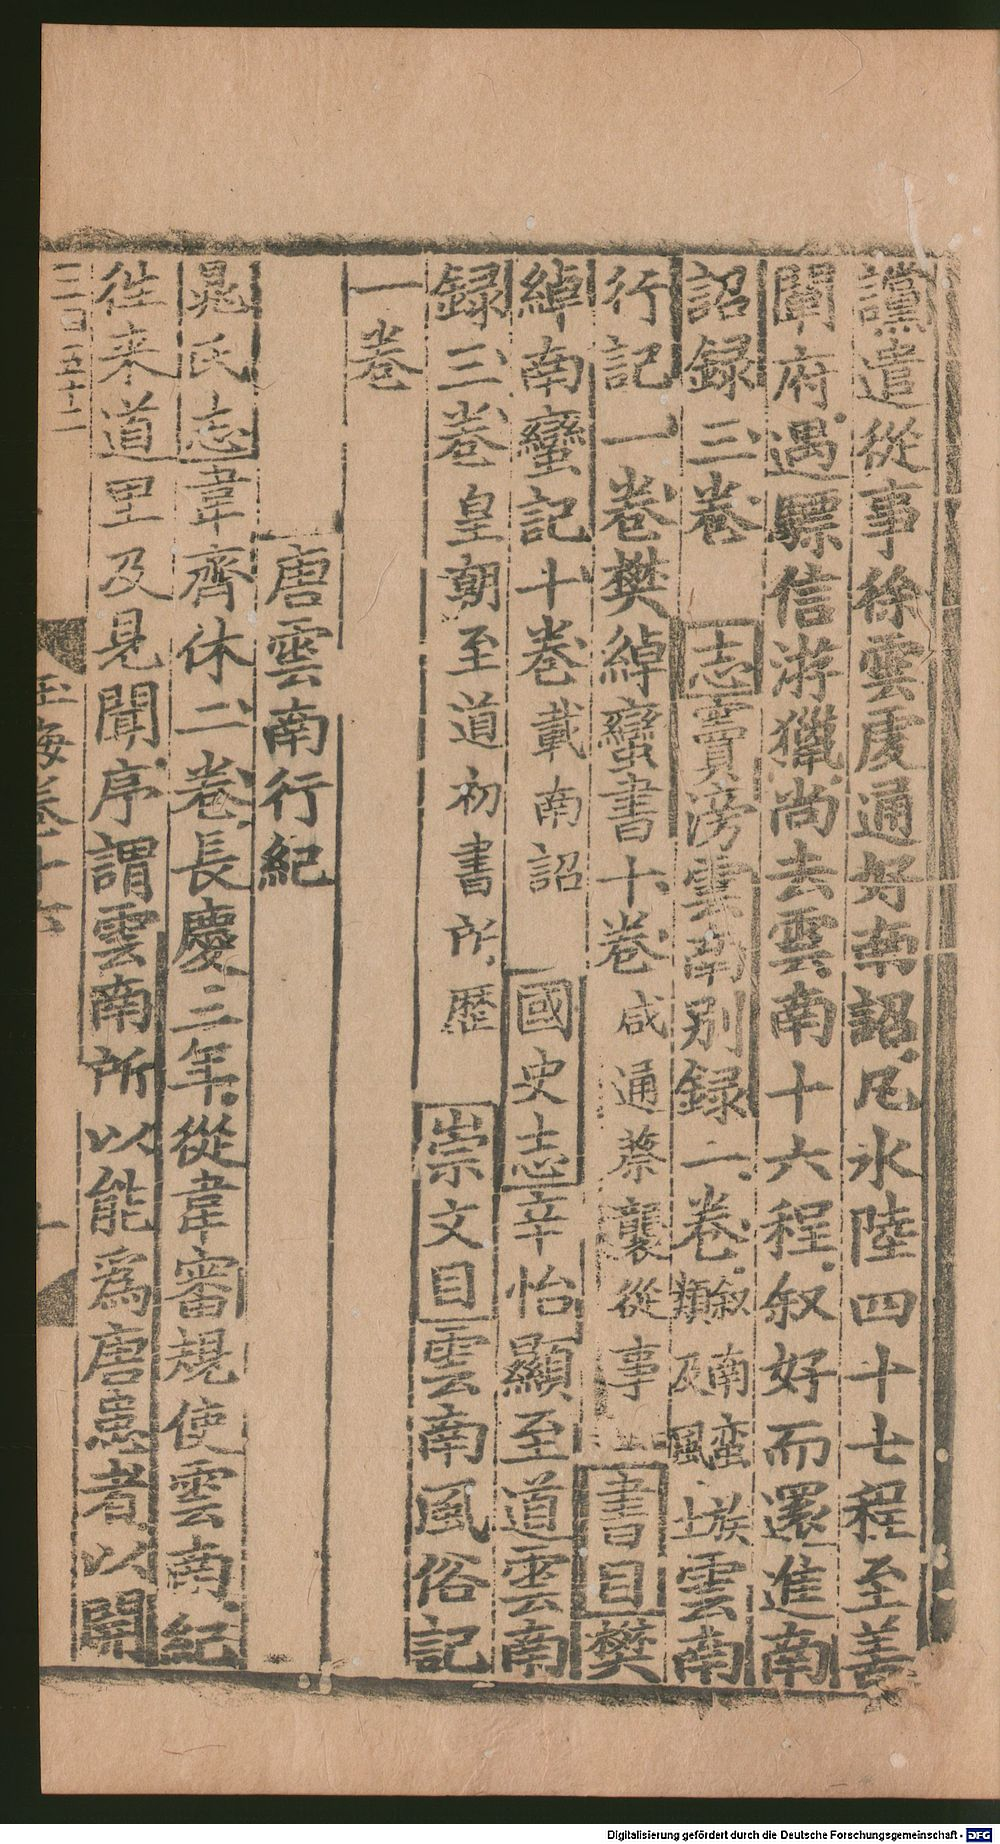 讜遣從事徐雲虔通好南詔凡水陸四十七程至善
闡府遇驃信游獵尚去雲南十六程叙好而還進南
詔録三卷 志竇滂雲南别録一卷叙南蛮族類及風土雲南
行記一卷樊綽蠻書十卷咸通蔡襲從事 書目樊
綽南蠻記十卷載南詔 國史志辛怡顯至道雲南
録三卷皇朝至道初書所歷 崇文目雲南風俗記
一卷
唐雲南行紀
晁氏志韋齊休二卷長慶三年從韋審規使雲南紀
往来道里及見聞序謂雲南所以能爲唐患者以開
三百五十二
玉海卷十六
Digitalisierung gefördert durch die Deutsche Forschungsgemeinschaft - DFG